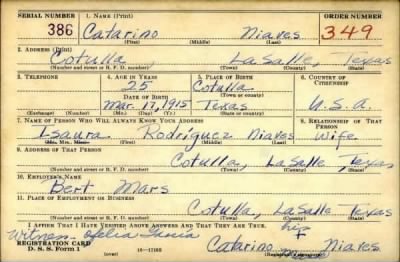 SERIAL NUMBER 1. NAME (Print) ORDER NUMBER
386 Catarino Niaves 349
(First) (Middle) (Last)
2. ADDRESS (Print)
Cotulla LaSalle, Texas
(Number and street or R. F. D. number) (Town) (County) (State)
3. TELEPHONE 4. AGE IN YEARS 5. PLACE OF BIRTH 6. COUNTRY OF CITIZENSHIP
25 Cotulla
DATE OF BIRTH (Town or county)
Mar. 17, 1915 Texas U.S.A.
(Exchange) (Number) (Mo.) (Day) (Yr.) (State or country)
7. NAME OF PERSON WHO WILL ALWAYS KNOW YOUR ADDRESS 8. RELATIONSHIP OF THAT PERSON
Isaura Rodriguez Niaves Wife
(Mr., Mrs., Miss) (First) (Middle) (Last)
9. ADDRESS OF THAT PERSON
Cotulla, LaSalle Texas
(Number and street or R. F. D. number) (Town) (County) (State)
10. EMPLOYER'S NAME
Bert Mars
11. PLACE OF EMPLOYMENT OR BUSINESS
Cotulla, LaSalle Texas
(Number and street or R. F. D. number) (Town) (County) (State)
I AFFIRM THAT I HAVE VERIFIED ABOVE ANSWERS AND THAT THEY ARE TRUE.
his
Witness - Ofelia
REGISTRATION CARD Catarino Niaves
D. S. S. Form 1 16-17105
(over)